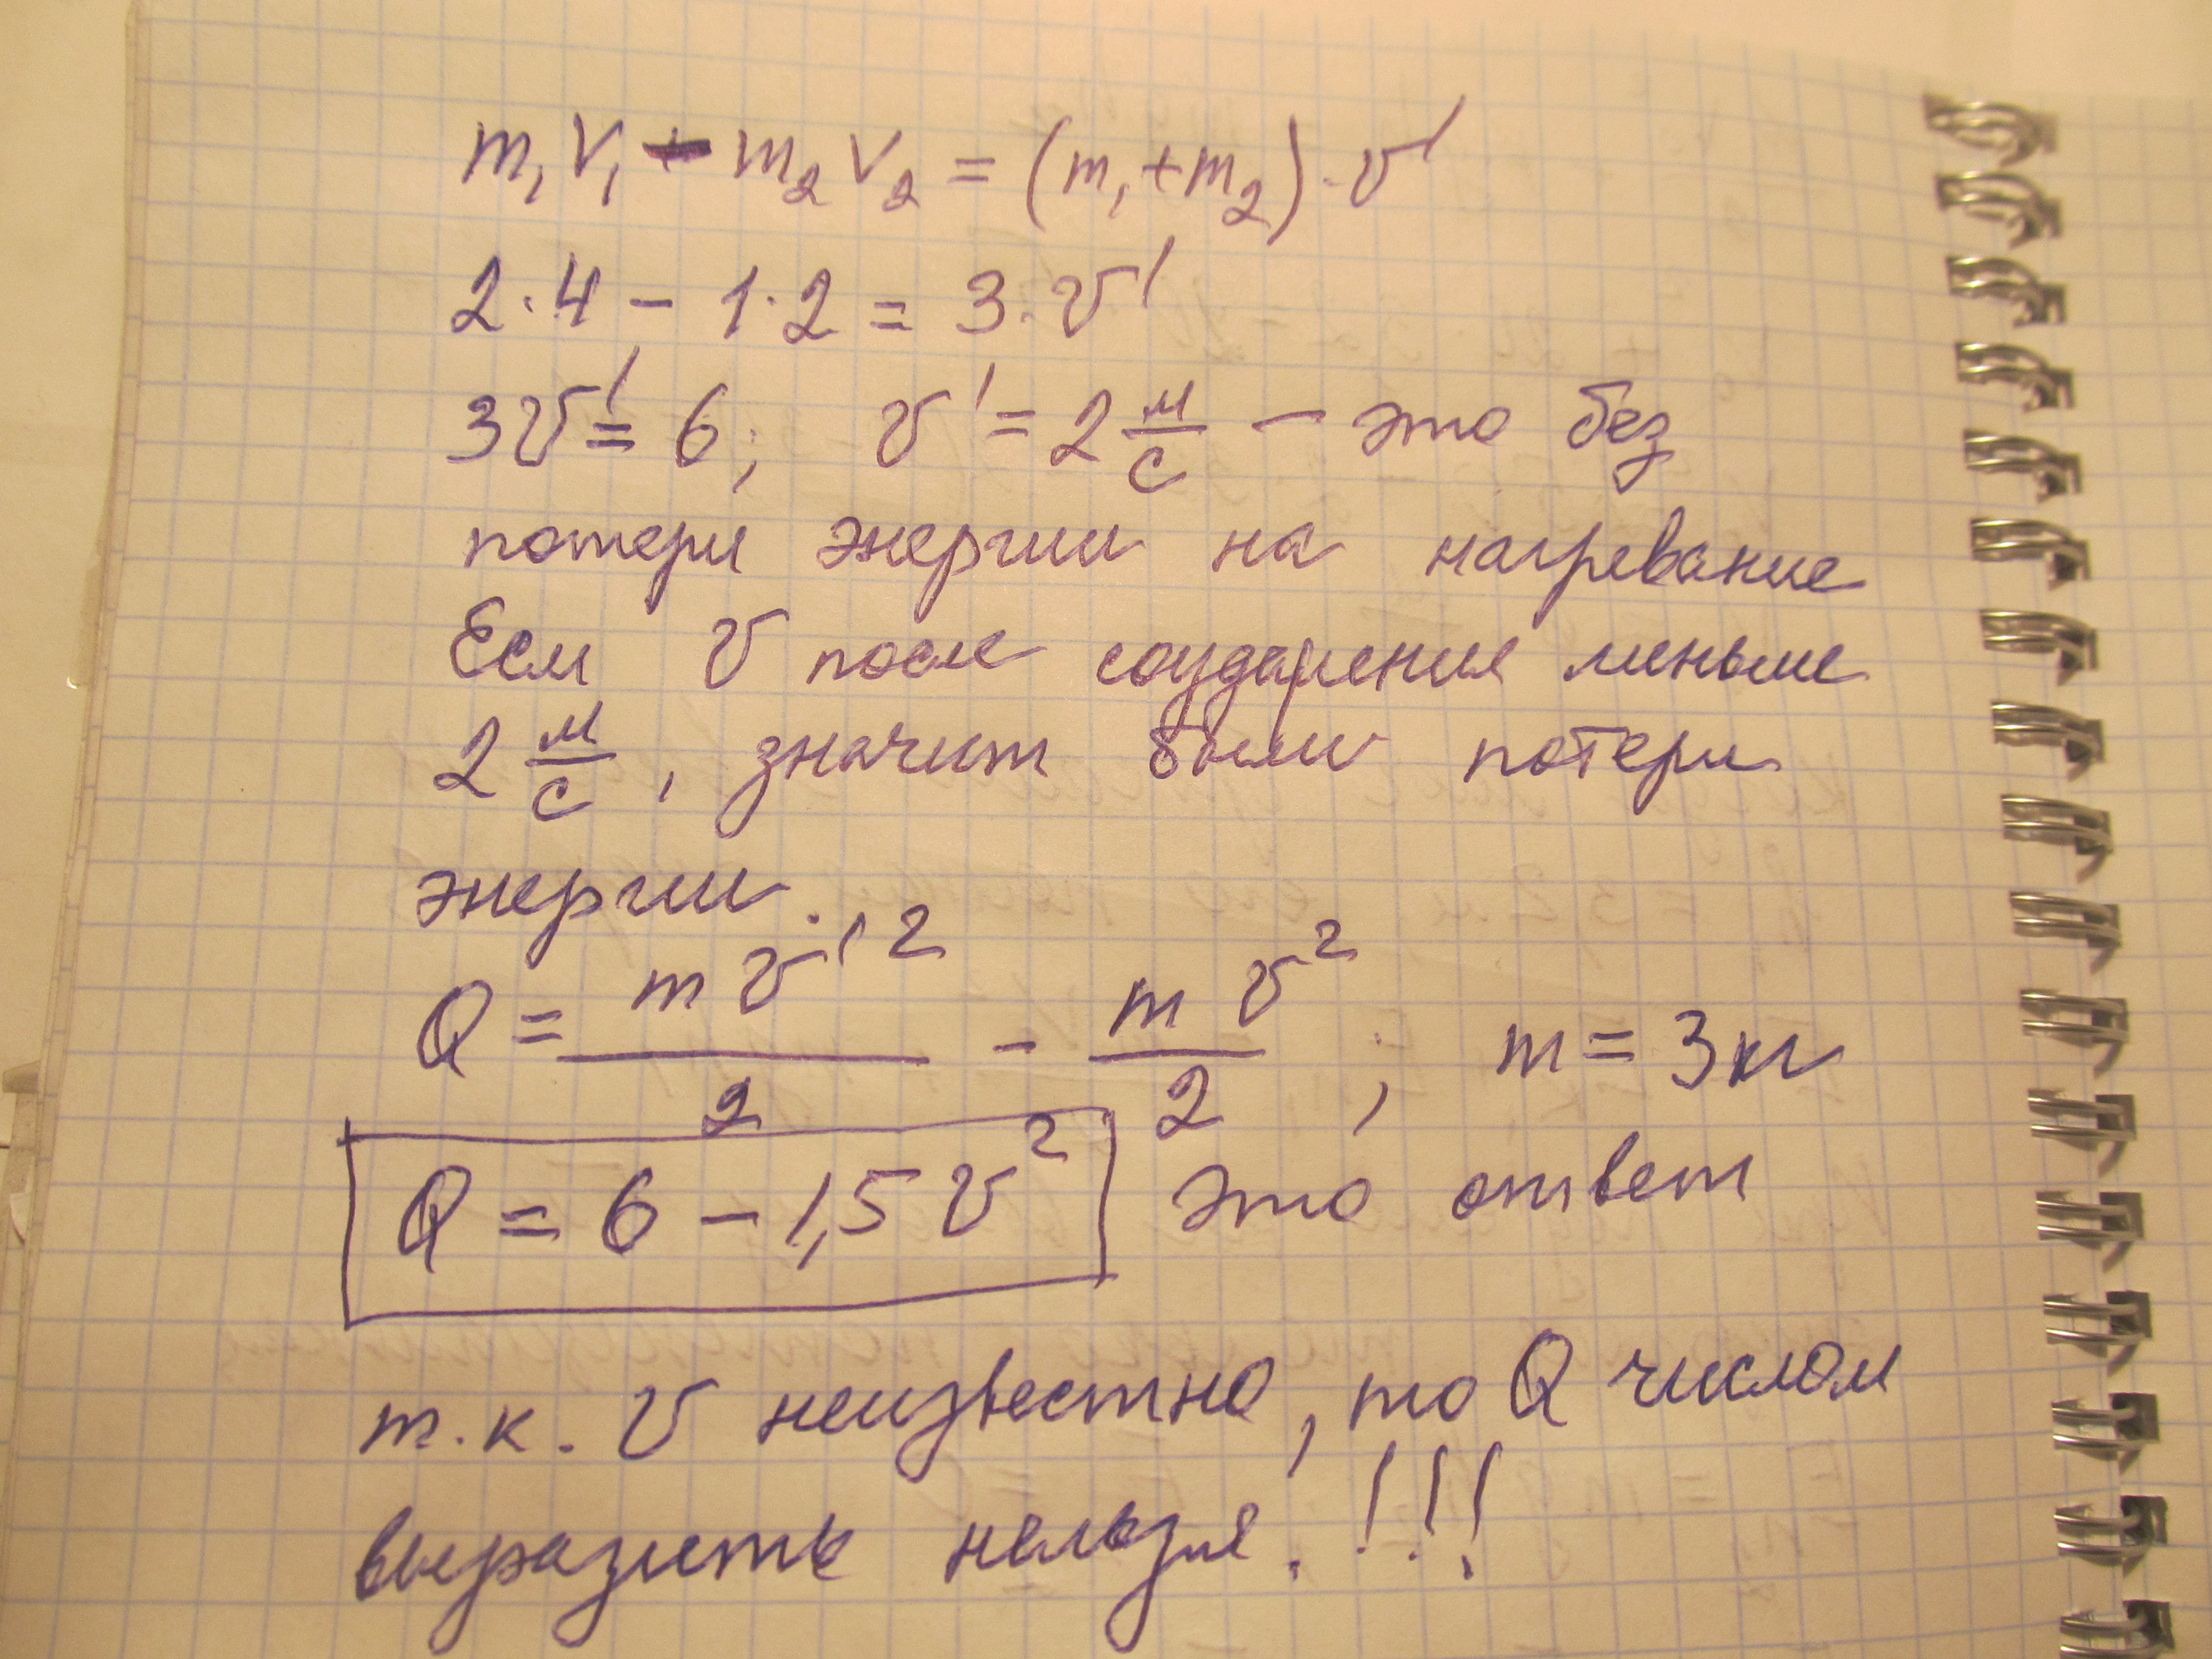 m₁V₁ - m₂V₂ = (m₁+m₂)·v'
2·4 - 1·2 = 3·v'
3v' = 6; v' = 2 м/с - это без
потери энергии на нагревание
Если v после соударения меньше
2 м/с, значит были потери
энергии.
Q = mv'²/2 - mv²/2; m = 3кг
Q = 6 - 1,5v² это ответ
т.к. v неизвестно, то Q числом
выразить нельзя.!!!